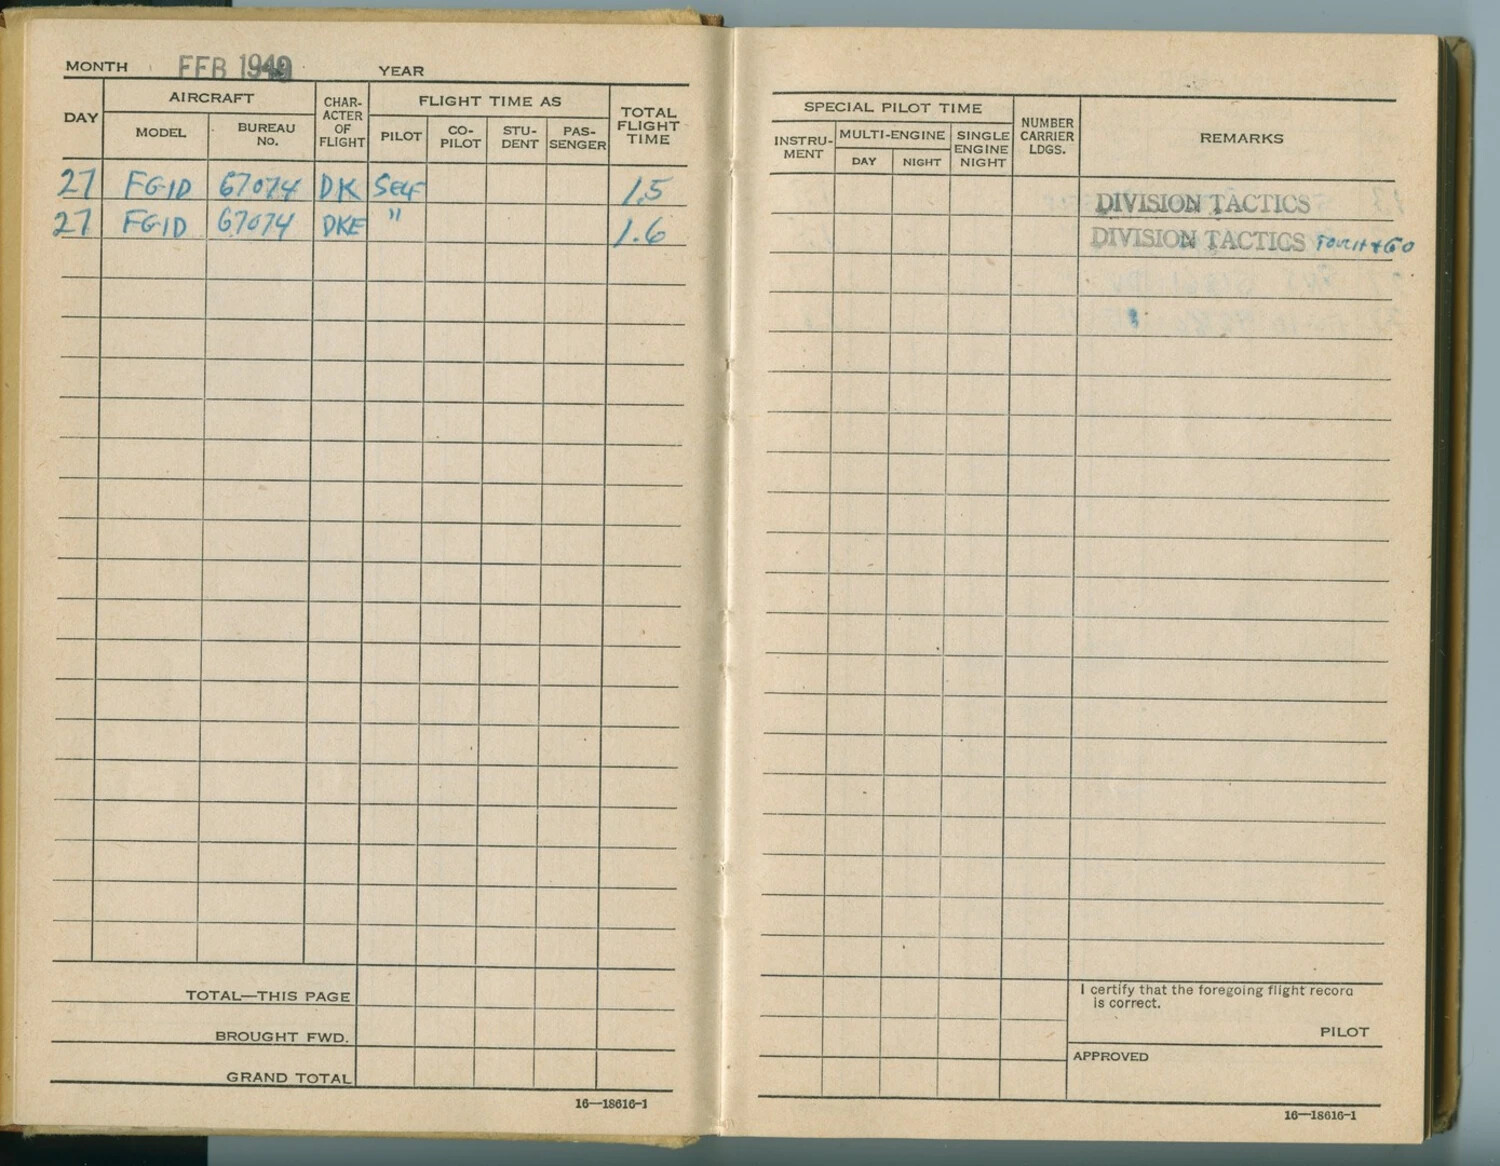 MONTH FEB 1949 YEAR
DAY AIRCRAFT CHAR-ACTER OF FLIGHT FLIGHT TIME AS TOTAL FLIGHT TIME
MODEL BUREAU NO. PILOT CO-PILOT STU-DENT PAS-SENGER
27 FG-1D 67074 DK SELF 1.5
27 FG-1D 67074 DKE " 1.6
TOTAL—THIS PAGE
BROUGHT FWD.
GRAND TOTAL
16—18616-1
SPECIAL PILOT TIME NUMBER CARRIER LDGS. REMARKS
INSTRU-MENT MULTI-ENGINE SINGLE ENGINE NIGHT
DAY NIGHT
DIVISION TACTICS
DIVISION TACTICS TOUCH + GO
I certify that the foregoing flight record
is correct.
PILOT
APPROVED
16—18616-1